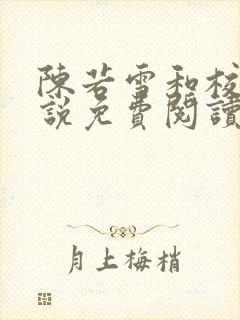 陳若雪和校
說免費閱讀
月上梅梢